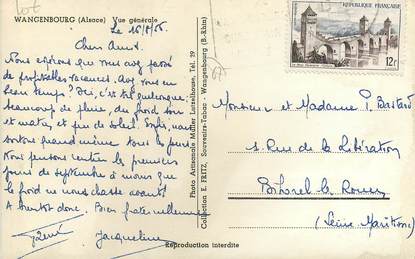 WANGENBOURG (Alsace) Vue générale
Le 16/8/56
Cher Ami.
Nous espérons que vous avez passé
de profitables vacances. Avez vous eu
beau temps? Ici, c'est quelconque.
beaucoup de pluie, du froid soir
et matin, et peu de soleil. Enfin, nous
sortons quand même tous les jours
Nous pensons rentrer les premiers
jours de septembre à moins que
le froid ne nous chasse avant!
A bientôt donc. Bien fraternellement
René Jacqueline
Reproduction interdite
Photo Artisanale Muller Lutzelhouse, Tél. 29
Collection E. FRITZ, Souvenirs-Tabac - Wangenbourg (B.-Rhin)
REPUBLIQUE FRANÇAISE
12F
Monsieur et Madame P. Bastard
Rue de la Libération
Bihorel les Rouen
(Seine Maritime)